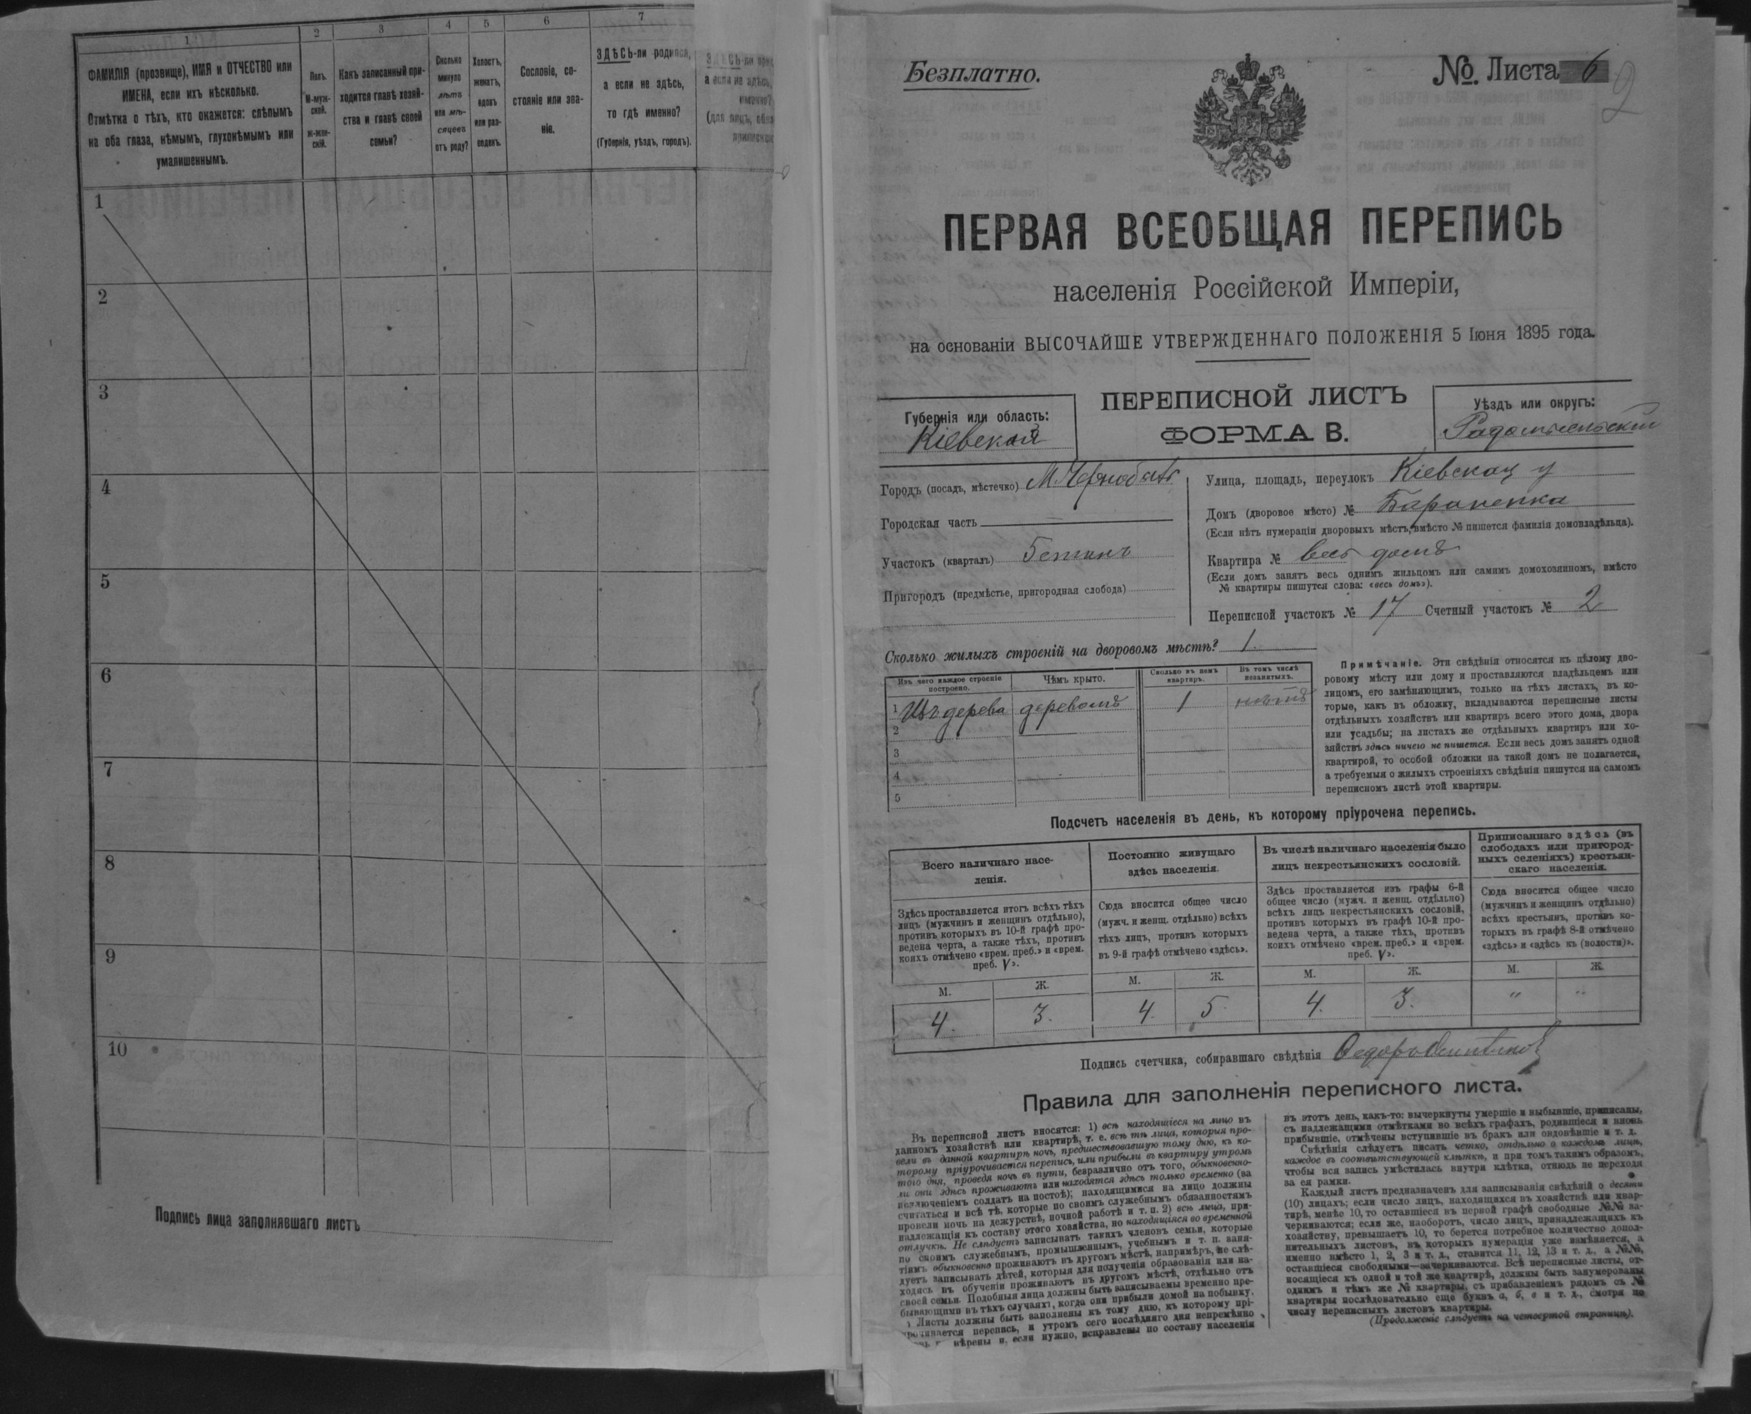 1
ФАМИЛІЯ (прозвище), ИМЯ и ОТЧЕСТВО или
ИМЕНА, если ихъ нѣсколько.
Отмѣтка о тѣхъ, кто окажется: слѣпымъ
на оба глаза, нѣмымъ, глухонѣмымъ или
умалишеннымъ.
2
Полъ.
М-муж-
ской.
ж-жен-
скій.
3
Какъ записанный при-
ходится главѣ хозяй-
ства и главѣ своей
семьи?
4
Сколько
минуло
лѣтъ
или мѣ-
сяцевъ
отъ роду?
5
Холостъ,
женатъ,
вдовъ
или раз-
веденъ.
6
Сословіе, со-
стояніе или зва-
ніе.
7
ЗДѢСЬ-ли родился,
а если не здѣсь,
то гдѣ именно?
(Губернія, уѣздъ, городъ).
1
2
3
4
5
6
7
8
9
10
Подпись лица заполнявшаго листъ
Безплатно.
№. Листа 6
2
ПЕРВАЯ ВСЕОБЩАЯ ПЕРЕПИСЬ
населенія Россійской Имперіи,
на основаніи ВЫСОЧАЙШЕ УТВЕРЖДЕННАГО ПОЛОЖЕНІЯ 5 Іюня 1895 года.
Губернія или область:
Кіевская
ПЕРЕПИСНОЙ ЛИСТЪ
ФОРМА В.
Уѣздъ или округъ:
Радомысльскій
Городъ (посадъ, мѣстечко) М. Чернобыль
Городская часть
Участокъ (кварталъ)
Пригородъ (предмѣстье, пригородная слобода)
Улица, площадь, переулокъ Кіевская у
Домъ (дворовое мѣсто) № Бараненка
(Если нѣтъ нумераціи дворовыхъ мѣстъ, вмѣсто № пишется фамилія домовладѣльца).
Квартира № весь домъ
(Если домъ занятъ весь однимъ жильцомъ или самимъ домохозяиномъ, вмѣсто
№ квартиры пишутся слова: «весь домъ»).
Переписной участокъ № 17 Счетный участокъ № 2
Сколько жилыхъ строеній на дворовомъ мѣстѣ? 1.
Изъ чего каждое строеніе
построено.
Чѣмъ крыто.
Сколько въ немъ
квартиръ.
Въ томъ числѣ
незанятыхъ.
1 Изъ дерева деревомъ 1 нѣтъ
2
3
4
5
Примѣчаніе. Эти свѣдѣнія относятся къ цѣлому дво-
ровому мѣсту или дому и проставляются владѣльцемъ или
лицомъ, его замѣняющимъ, только на тѣхъ листахъ, въ ко-
торые, какъ въ обложку, вкладываются переписные листы
отдѣльныхъ хозяйствъ или квартиръ всего этого дома, двора
или усадьбы; на листахъ же отдѣльныхъ квартиръ или хо-
зяйствъ здѣсь ничего не пишется. Если весь домъ занятъ одной
квартирой, то особой обложки на такой домъ не полагается,
а требуемыя о жилыхъ строеніяхъ свѣдѣнія пишутся на самомъ
переписномъ листѣ этой квартиры.
Подсчетъ населенія въ день, къ которому пріурочена перепись.
Всего наличнаго насе-
ленія.
Здѣсь проставляется итогъ всѣхъ тѣхъ
лицъ (мужчинъ и женщинъ отдѣльно),
противъ которыхъ въ 10-й графѣ про-
ведена черта, а также тѣхъ, противъ
коихъ отмѣчено «врем. преб.» и «врем.
преб. V».
Постоянно живущаго
здѣсь населенія.
Сюда вносится общее число
(мужч. и женщ. отдѣльно) всѣхъ
тѣхъ лицъ, противъ которыхъ
въ 9-й графѣ отмѣчено «здѣсь».
Въ числѣ наличнаго населенія было
лицъ некрестьянскихъ сословій.
Здѣсь проставляется изъ графы 6-й
общее число (мужч. и женщ. отдѣльно)
всѣхъ лицъ некрестьянскихъ сословій,
противъ которыхъ въ графѣ 10-й про-
ведена черта, а также тѣхъ, противъ
коихъ отмѣчено «врем. преб.» и «врем.
преб. V».
Приписаннаго здѣсь (въ
слободахъ или пригород-
ныхъ селеніяхъ) крестьян-
скаго населенія.
Сюда вносится общее число
(мужчинъ и женщинъ отдѣльно)
всѣхъ крестьянъ, противъ ко-
торыхъ въ графѣ 8-й отмѣчено
«здѣсь» и «здѣсь къ (волости)».
М. Ж. М. Ж. М. Ж. М. Ж.
4. 3. 4. 5. 4. 3. " "
Подпись счетчика, собиравшаго свѣдѣнія Федоръ
Правила для заполненія переписного листа.
Въ переписной листъ вносятся: 1) всѣ находящіеся на лицо въ
данномъ хозяйствѣ или квартирѣ, т. е. всѣ тѣ лица, которыя про-
вели въ данной квартирѣ ночь, предшествовавшую тому дню, къ ко-
торому пріурочивается перепись, или прибыли въ квартиру утромъ
того дня, проведя ночь въ пути, безразлично отъ того, обыкновенно-
ли они здѣсь проживаютъ или находятся здѣсь только временно (за
исключеніемъ солдатъ на постоѣ); находящимися на лицо должны
считаться и всѣ тѣ, которые по своимъ служебнымъ обязанностямъ
провели ночь на дежурствѣ, ночной работѣ и т. п. 2) всѣ лица, при-
надлежащія къ составу этого хозяйства, но находящіяся во временной
отлучкѣ. Не слѣдуетъ записывать такихъ членовъ семьи, которые
по своимъ служебнымъ, промышленнымъ, учебнымъ и т. п. заня-
тіямъ обыкновенно проживаютъ въ другомъ мѣстѣ, напримѣръ, не слѣ-
дуетъ записывать дѣтей, которыя для полученія образованія или на-
ходясь въ обученіи проживаютъ въ другомъ мѣстѣ, отдѣльно отъ
своей семьи. Подобныя лица должны быть записываемы временно пре-
бывающими въ тѣхъ случаяхъ, когда они прибыли домой на побывку.
Листы должны быть заполнены къ тому дню, къ которому прі-
урочивается перепись, и утромъ сего послѣдняго дня непремѣнно
провѣрены и, если нужно, исправлены по составу населенія
въ этотъ день, какъ-то: вычеркнуты умершіе и выбывшіе, приписаны,
съ надлежащими отмѣтками во всѣхъ графахъ, родившіеся и вновь
прибывшіе, отмѣчены вступившіе въ бракъ или овдовѣвшіе и т. д.
Свѣдѣнія слѣдуетъ писать четко, отдѣльно о каждомъ лицѣ,
каждое въ соотвѣтствующей клѣткѣ, и при томъ такимъ образомъ,
чтобы вся запись умѣстилась внутри клѣтки, отнюдь не переходя
за ея рамки.
Каждый листъ предназначенъ для записыванія свѣдѣній о десяти
(10) лицахъ; если число лицъ, находящихся въ хозяйствѣ или квар-
тирѣ, менѣе 10, то оставшіеся въ первой графѣ свободные №№ за-
черкиваются; если же, наоборотъ, число лицъ, принадлежащихъ къ
хозяйству, превышаетъ 10, то берется потребное количество допол-
нительныхъ листовъ, въ которыхъ нумерація уже измѣняется, а
именно вмѣсто 1, 2, 3 и т. д., ставится 11, 12, 13 и т. д., а №№,
оставшіеся свободными—зачеркиваются. Всѣ переписные листы, от-
носящіеся къ одной и той же квартирѣ, должны быть занумерованы
однимъ и тѣмъ же № квартиры, съ прибавленіемъ рядомъ съ №
квартиры послѣдовательно еще буквъ а, б, в и т. д., смотря по
числу переписныхъ листовъ квартиры.
(Продолженіе слѣдуетъ на четвертой страницѣ).